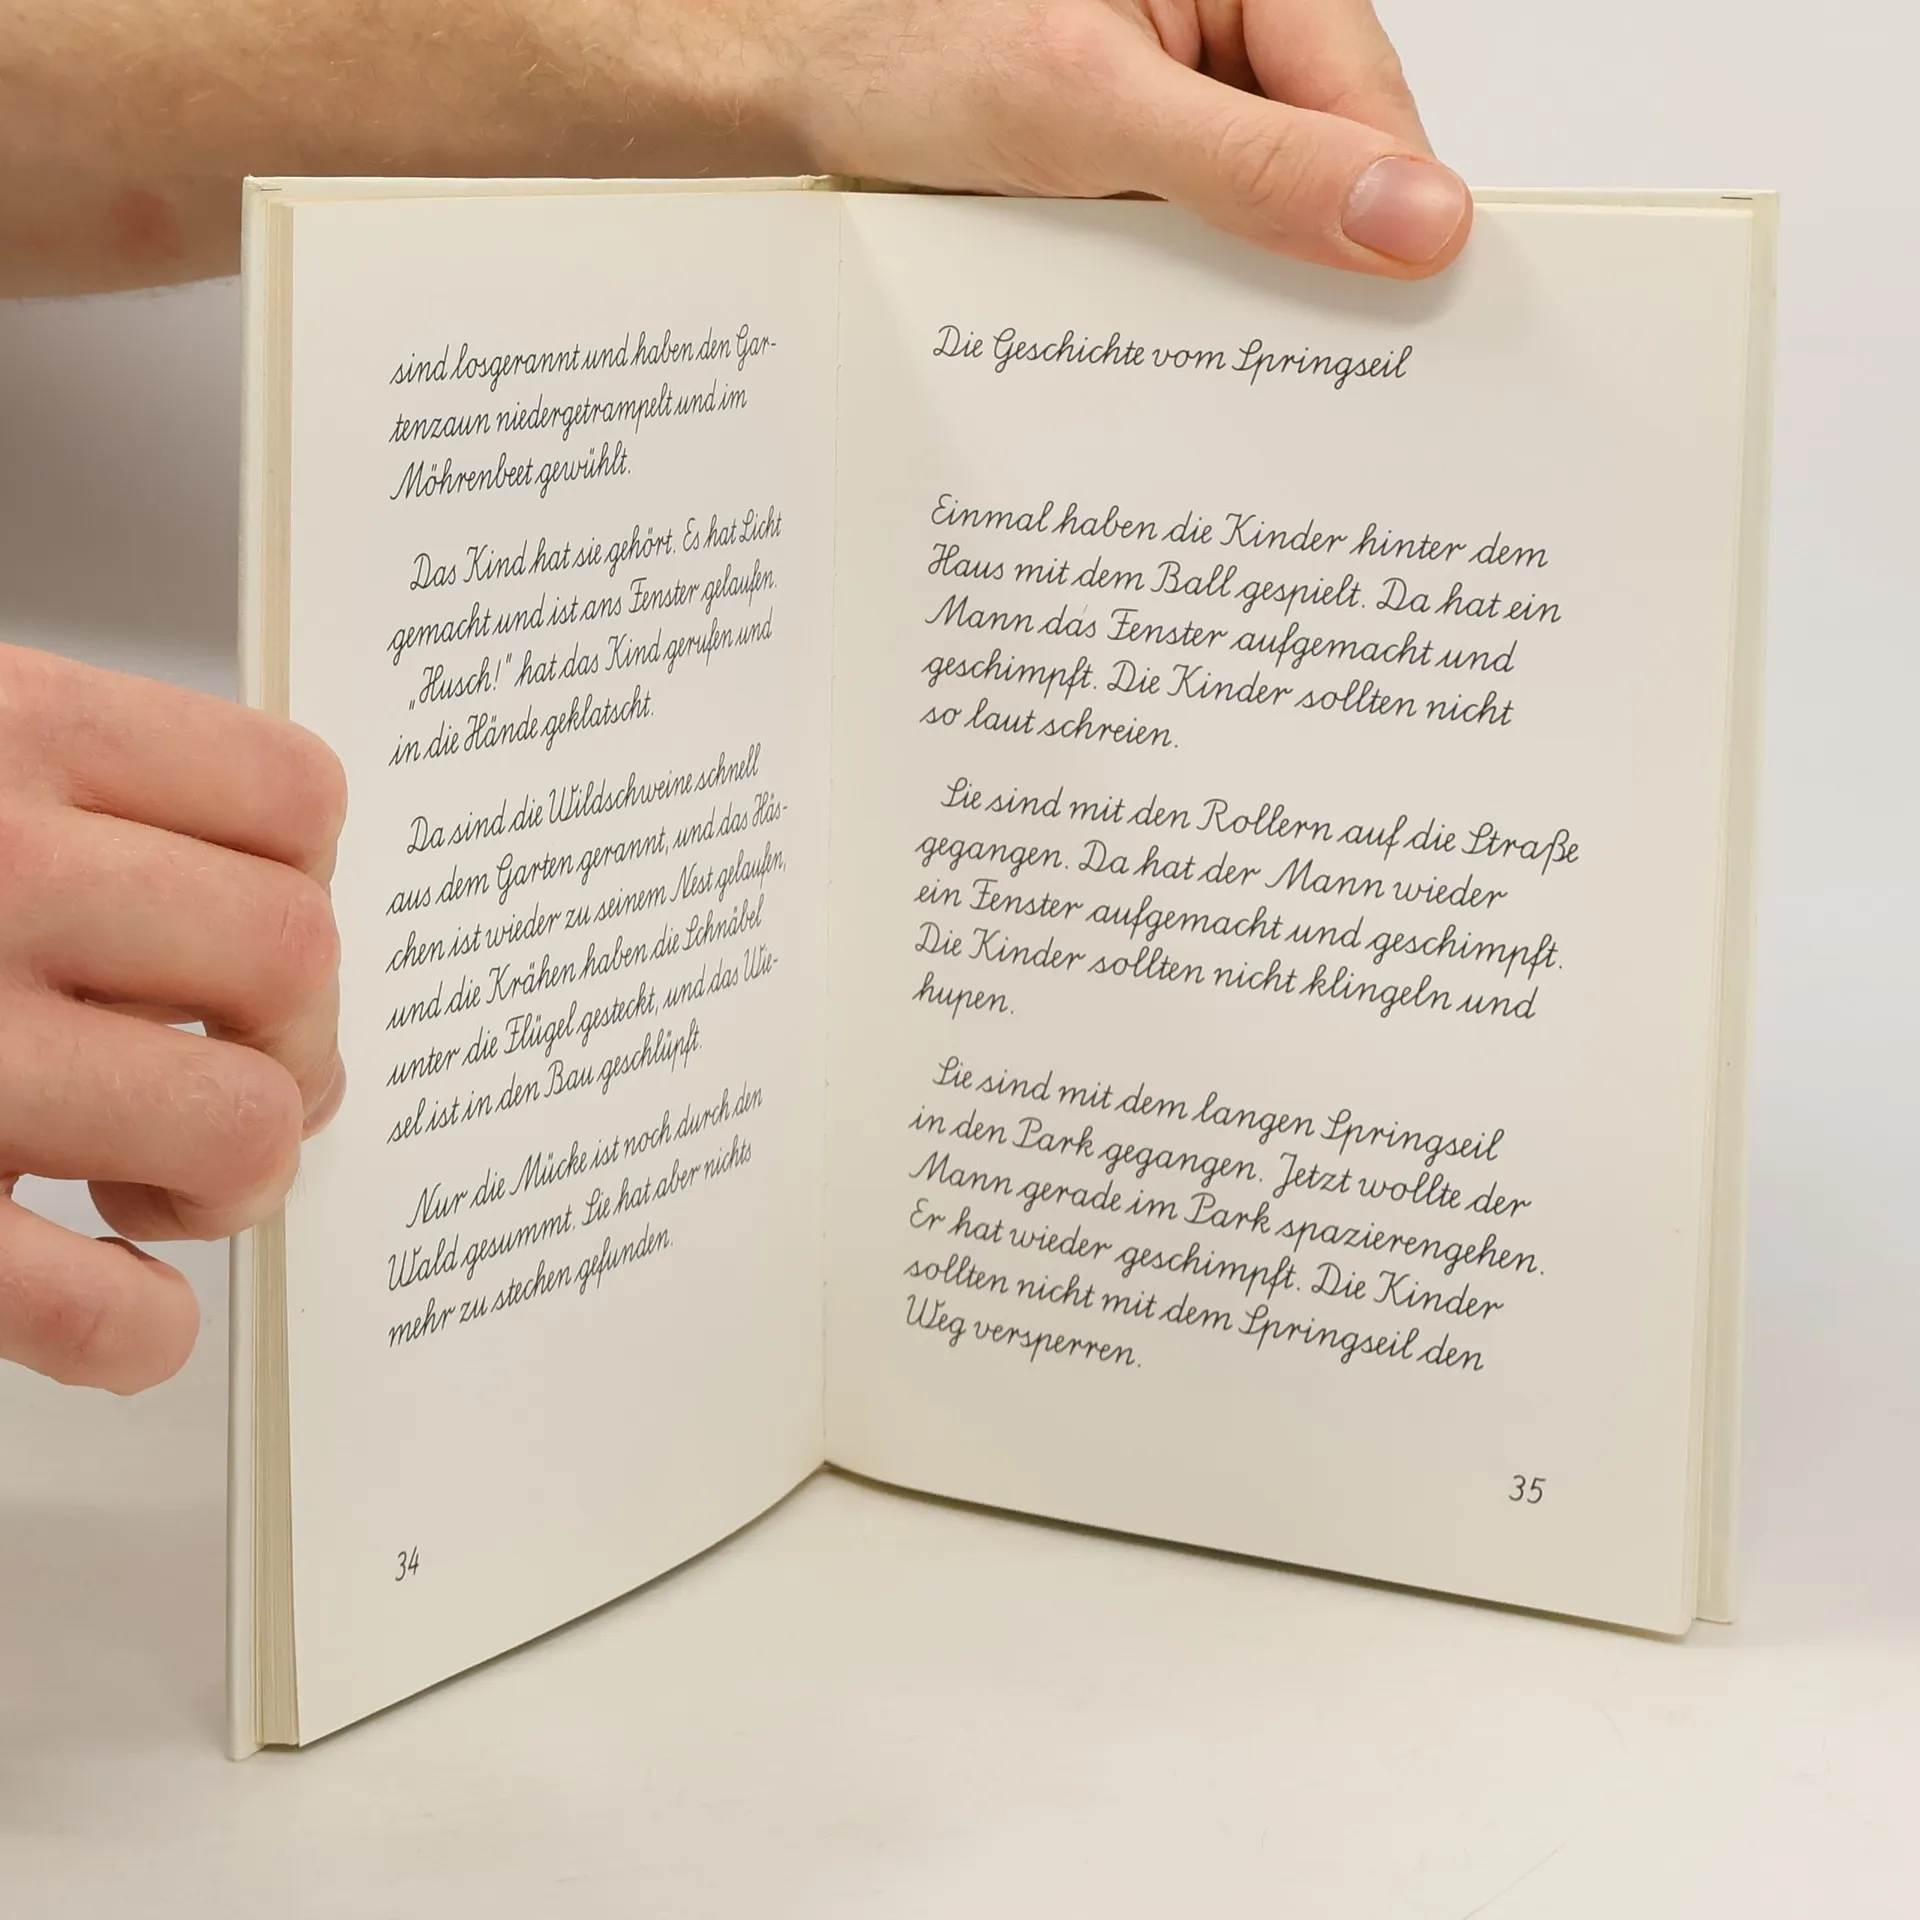 sind losgerannt und haben den Gar-
tenzaun niedergetrampelt und im
Möhrenbeet gewühlt.
Das Kind hat sie gehört. Es hat Licht
gemacht und ist ans Fenster gelaufen.
„Husch!“ hat das Kind gerufen und
in die Hände geklatscht.
Da sind die Wildschweine schnell
aus dem Garten gerannt, und das Häs-
chen ist wieder zu seinem Nest gelaufen,
und die Krähen haben die Schnäbel
unter die Flügel gesteckt, und das Wie-
sel ist in den Bau geschlüpft.
Nur die Mücke ist noch durch den
Wald gesummt. Sie hat aber nichts
mehr zu stechen gefunden.
34
Die Geschichte vom Springseil
Einmal haben die Kinder hinter dem
Haus mit dem Ball gespielt. Da hat ein
Mann das Fenster aufgemacht und
geschimpft. Die Kinder sollten nicht
so laut schreien.
Sie sind mit den Rollern auf die Straße
gegangen. Da hat der Mann wieder
ein Fenster aufgemacht und geschimpft.
Die Kinder sollten nicht klingeln und
hupen.
Sie sind mit dem langen Springseil
in den Park gegangen. Jetzt wollte der
Mann gerade im Park spazierengehen.
Er hat wieder geschimpft. Die Kinder
sollten nicht mit dem Springseil den
Weg versperren.
35